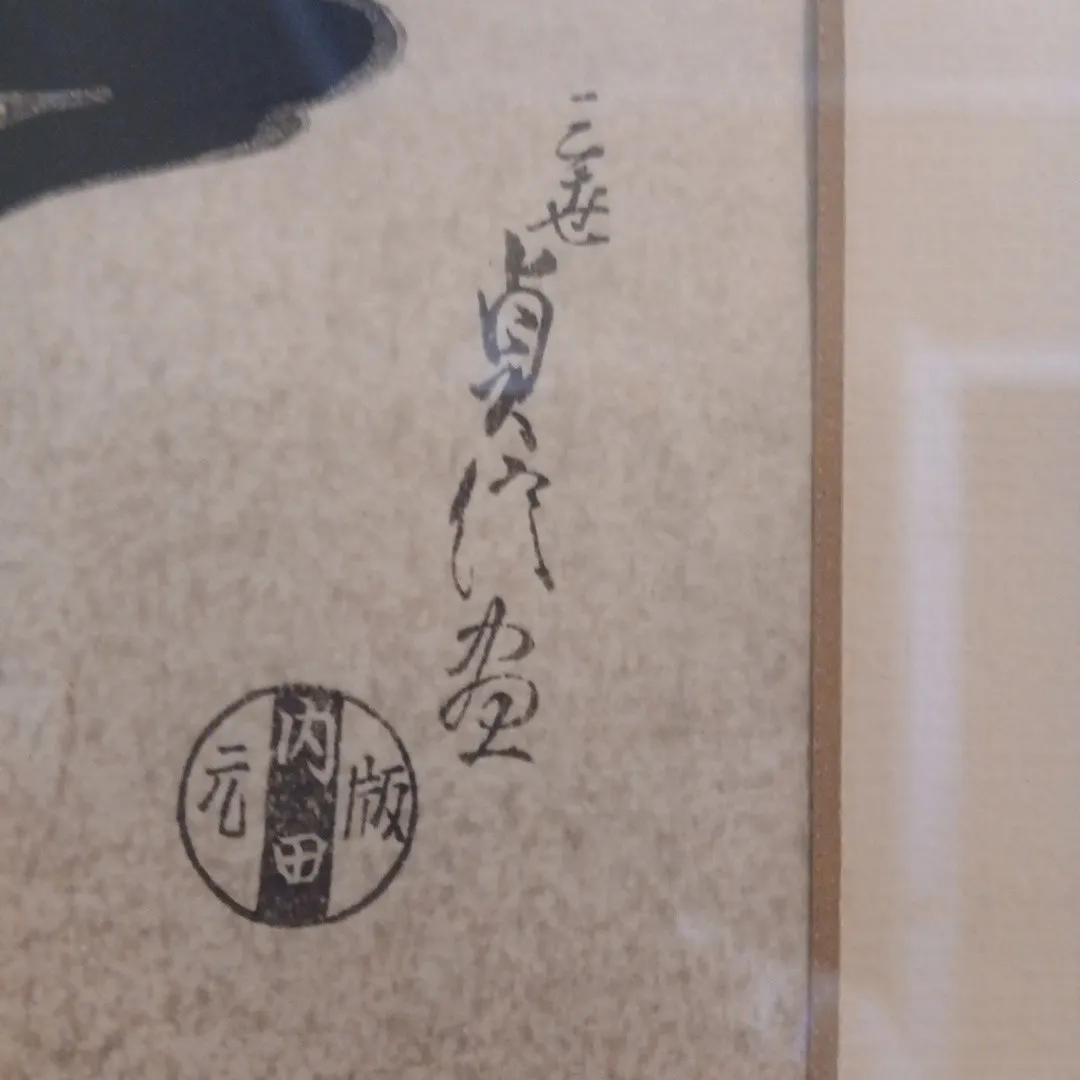 三世貞信画
版元
内田